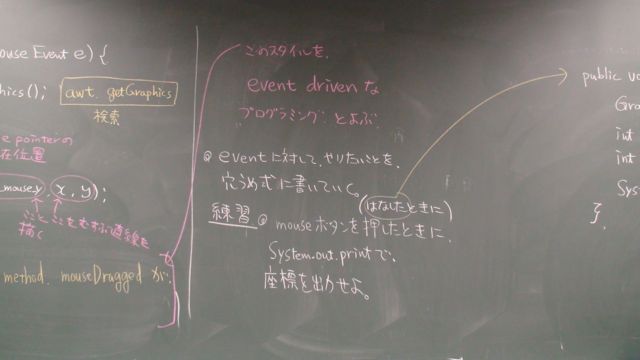 ouse Event e) {
hics(); awt. getGraphics
検索
e pointerの
在位置
mousey, x, y);
こことここをむすぶ直線を
描く
method. mouseDragged が、
このスタイルを、
event driven な
プログラミング とよぶ.
@ eventに対して、やりたいことを、
穴うめ式に書いていく。
(はなしたときに)
練習 @ mouseボタンを押したときに、
System.out.printで、
座標を出力せよ。
public vo
Gra
int
int
Sys
}.